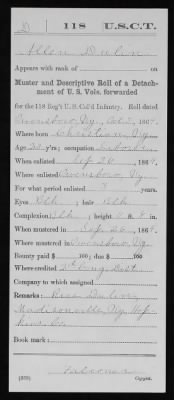 D | 118 | U.S.C.T.
Allen Dulin
Appears with rank of
Muster and Descriptive Roll of a Detach-
ment of U. S. Vols. forwarded
for the 118 Reg't U.S. Col'd Infantry. Roll dated
Owensboro Ky. Oct 2, 1864.
Where born Christian Ky.
Age 22 y'rs; occupation Laborer
When enlisted Sep 26, 1864.
Where enlisted Owensboro, Ky.
For what period enlisted 3 years.
Eyes Blk; hair Blk
Complexion Blk; height ft. 8 in.
When mustered in Sep 26, 1864.
Where mustered in Owensboro Ky
Bounty paid $ 100; due $ 100
Where credited 2d Cong. Dist.
Company to which assigned
Remarks: Dulin,
Madisonville, Ky. Hop
kins Co.
Book mark:
(339) Copyist.